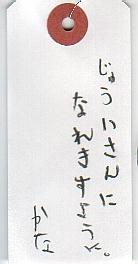 じょういさんに
なれますように。
かな